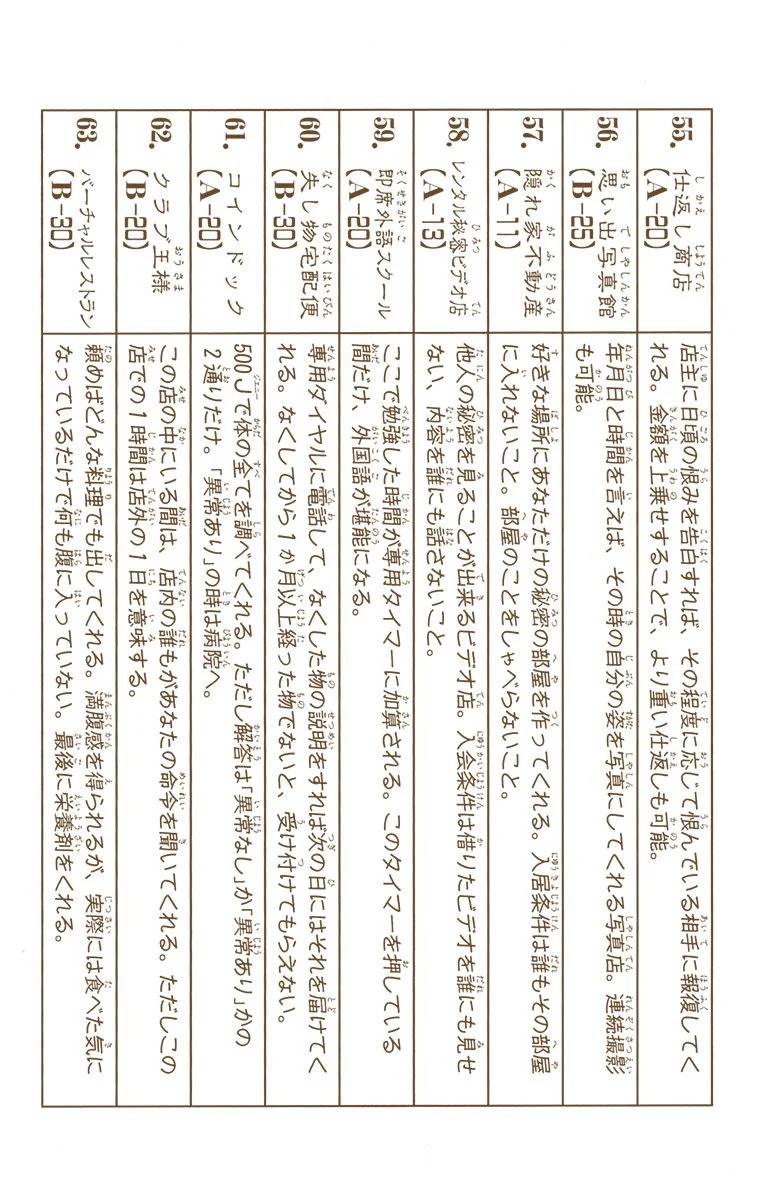 55. 仕返し商店
(A-20)
店主に日頃の恨みを告白すれば、その程度に応じて恨んでいる相手に報復してく
れる。金額を上乗せすることで、より重い仕返しも可能。
56. 思い出写真館
(B-25)
年月日と時間を言えば、その時の自分の姿を写真にしてくれる写真店。連続撮影
も可能。
57. 隠れ家不動産
(A-11)
好きな場所にあなただけの秘密の部屋を作ってくれる。入居条件は誰もその部屋
に入れないこと。部屋のことをしゃべらないこと。
58. レンタル秘密ビデオ店
(A-13)
他人の秘密を見ることが出来るビデオ店。入会条件は借りたビデオを誰にも見せ
ない、内容を誰にも話さないこと。
59. 即席外語スクール
(A-20)
ここで勉強した時間が専用タイマーに加算される。このタイマーを押している
間だけ、外国語が堪能になる。
60. 失し物宅配便
(B-30)
専用ダイヤルに電話して、なくした物の説明をすれば次の日にはそれを届けてく
れる。なくしてから1か月以上経った物でないと、受け付けてもらえない。
61. コインドック
(A-20)
500Jで体の全てを調べてくれる。ただし解答は「異常なし」か「異常あり」かの
2通りだけ。「異常あり」の時は病院へ。
62. クラブ王様
(B-20)
この店の中にいる間は、店内の誰もがあなたの命令を聞いてくれる。ただしこの
店での1時間は店外の1日を意味する。
63. バーチャルレストラン
(B-30)
頼めばどんな料理でも出してくれる。満腹感を得られるが、実際には食べた気に
なっているだけで何も腹に入っていない。最後に栄養剤をくれる。